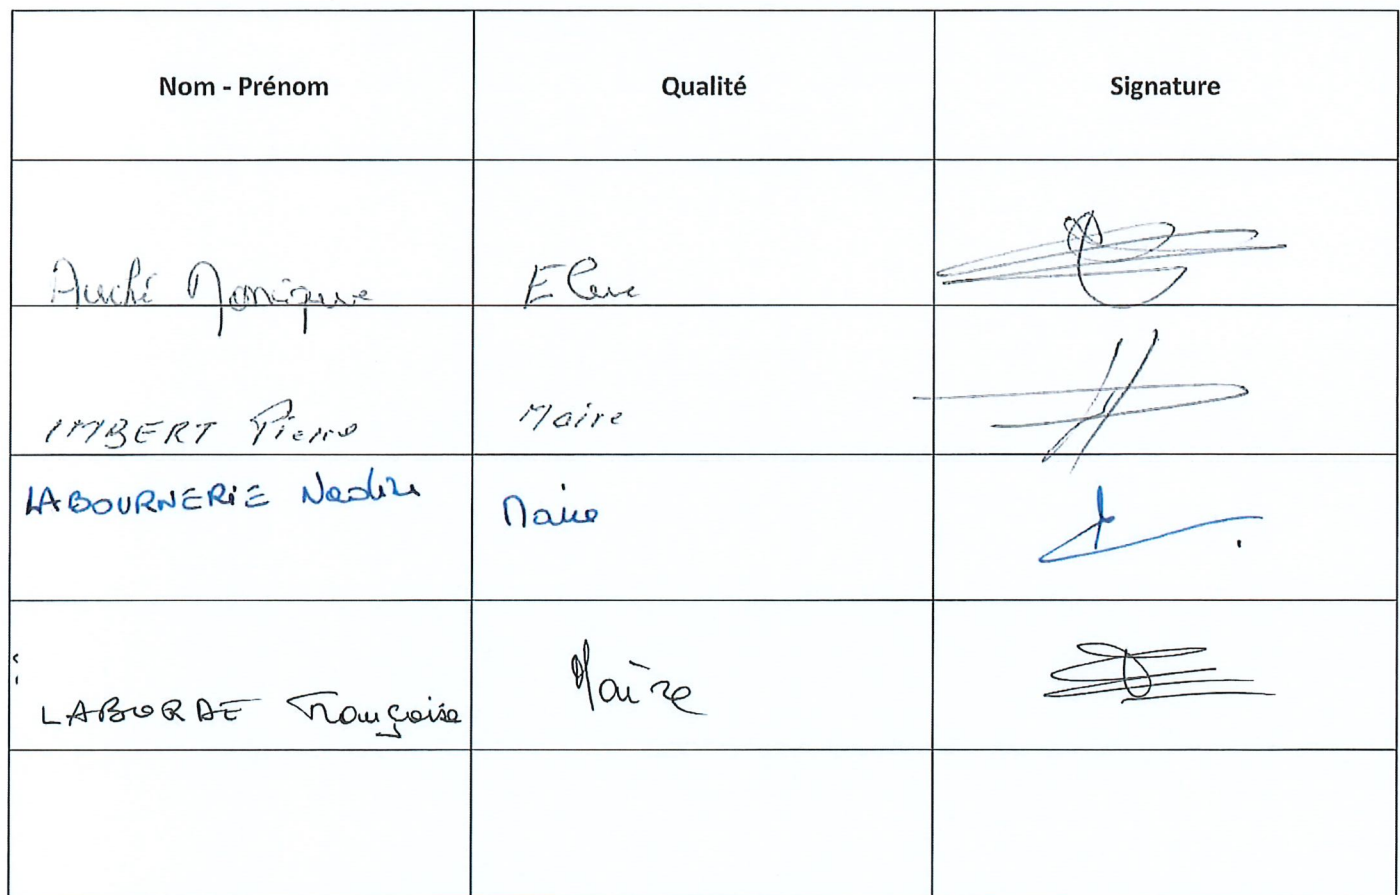 Nom - Prénom Qualité Signature
Auché Monique Elue
IMBERT Pierre Maire
LABOURNERIE Nadine Maire
LABORDE Françoise Maire